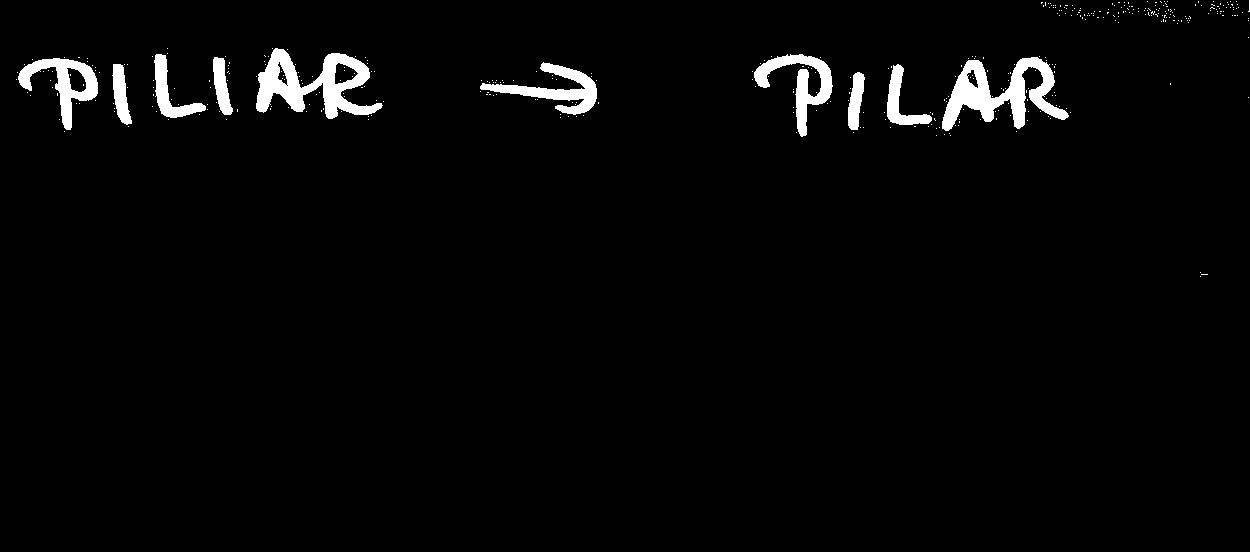 PILIAR → PILAR